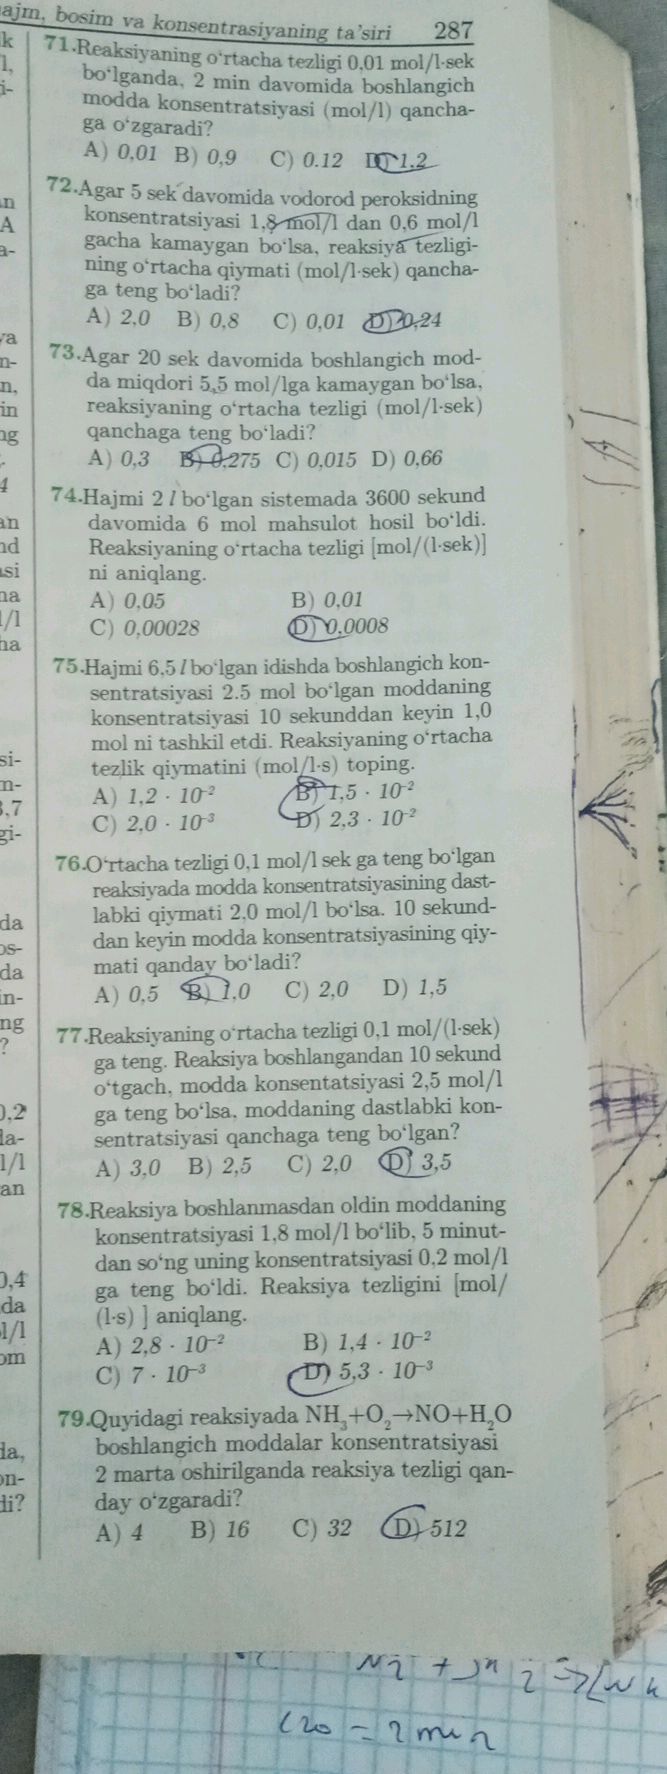 ajm, bosim va konsentrasiyaning ta'siri 287
71.Reaksiyaning o'rtacha tezligi 0,01 mol/l·sek
bo'lganda, 2 min davomida boshlangich
modda konsentratsiyasi (mol/l) qancha-
ga o'zgaradi?
A) 0,01 B) 0,9 C) 0.12 D) 1,2
72.Agar 5 sek davomida vodorod peroksidning
konsentratsiyasi 1,8 mol/l dan 0,6 mol/l
gacha kamaygan bo'lsa, reaksiya tezligi-
ning o'rtacha qiymati (mol/l·sek) qancha-
ga teng bo'ladi?
A) 2,0 B) 0,8 C) 0,01 D) 0,24
73.Agar 20 sek davomida boshlangich mod-
da miqdori 5,5 mol/lga kamaygan bo'lsa,
reaksiyaning o'rtacha tezligi (mol/l·sek)
qanchaga teng bo'ladi?
A) 0,3 B) 0,275 C) 0,015 D) 0,66
74.Hajmi 2 l bo'lgan sistemada 3600 sekund
davomida 6 mol mahsulot hosil bo'ldi.
Reaksiyaning o'rtacha tezligi [mol/(l·sek)]
ni aniqlang.
A) 0,05 B) 0,01
C) 0,00028 D) 0,0008
75.Hajmi 6,5 l bo'lgan idishda boshlangich kon-
sentratsiyasi 2.5 mol bo'lgan moddaning
konsentratsiyasi 10 sekunddan keyin 1,0
mol ni tashkil etdi. Reaksiyaning o'rtacha
tezlik qiymatini (mol/l·s) toping.
A) 1,2 · 10⁻² B) 1,5 · 10⁻²
C) 2,0 · 10⁻³ D) 2,3 · 10⁻²
76.O'rtacha tezligi 0,1 mol/l sek ga teng bo'lgan
reaksiyada modda konsentratsiyasining dast-
labki qiymati 2,0 mol/l bo'lsa. 10 sekund-
dan keyin modda konsentratsiyasining qiy-
mati qanday bo'ladi?
A) 0,5 B) 1,0 C) 2,0 D) 1,5
77.Reaksiyaning o'rtacha tezligi 0,1 mol/(l·sek)
ga teng. Reaksiya boshlangandan 10 sekund
o'tgach, modda konsentatsiyasi 2,5 mol/l
ga teng bo'lsa, moddaning dastlabki kon-
sentratsiyasi qanchaga teng bo'lgan?
A) 3,0 B) 2,5 C) 2,0 D) 3,5
78.Reaksiya boshlanmasdan oldin moddaning
konsentratsiyasi 1,8 mol/l bo'lib, 5 minut-
dan so'ng uning konsentratsiyasi 0,2 mol/l
ga teng bo'ldi. Reaksiya tezligini [mol/
(l·s) ] aniqlang.
A) 2,8 · 10⁻² B) 1,4 · 10⁻²
C) 7 · 10⁻³ D) 5,3 · 10⁻³
79.Quyidagi reaksiyada NH₃+O₂→NO+H₂O
boshlangich moddalar konsentratsiyasi
2 marta oshirilganda reaksiya tezligi qan-
day o'zgaradi?
A) 4 B) 16 C) 32 D) 512
120 = 2 min